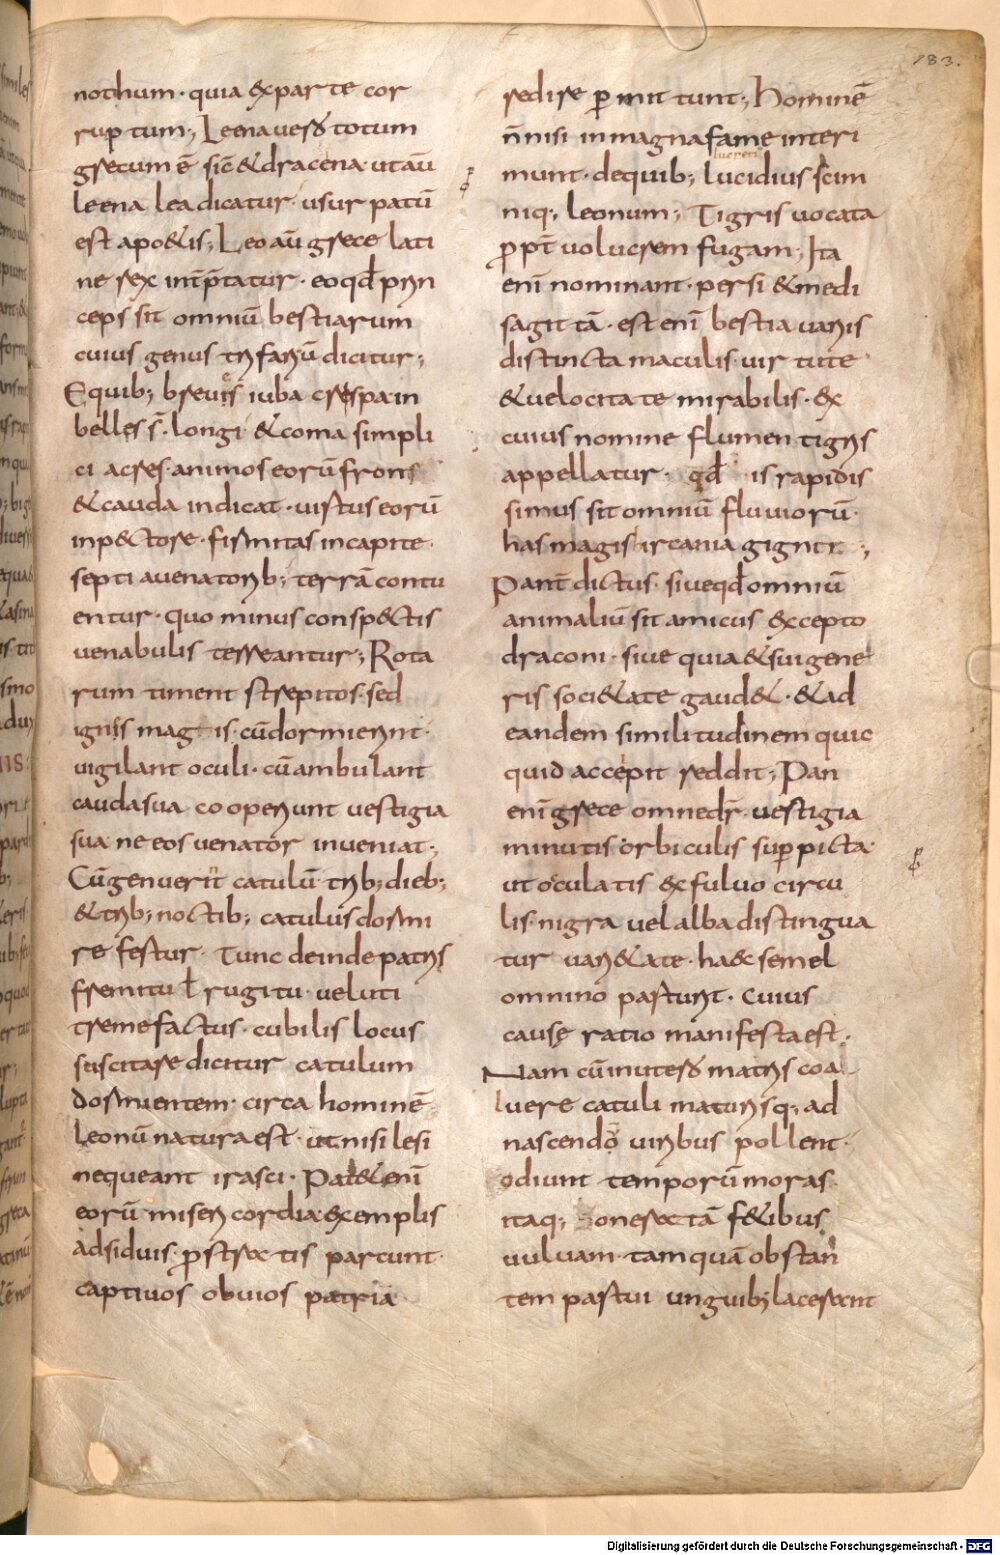 183.
nothum · quia & parte cor
ruptum ; Leena uero totum
grecum ē sic & dracena · ut aū
leena lea dicatur usurpatū
est a poetis ; Leo aū grece lati
ne rex int̄p̄tatur · eo qđ prin
ceps sit omniū bestiarum
cuius genus trifariū dicitur ;
E quib; breues iuba crespa in
belles s̄ · longi & coma simpli
ci acres · animos eorū frons
& cauda indicat · uirtus eorū
in pectore · firmitas in capite ·
septi a uenatorib; terrā contu
entur · quo minus conspectis
uenabulis terreantur ; Rota
rum timent strepitos · sed
ignis magis · cū dormierint ·
uigilant oculi · cū ambulant
cauda sua cooperiunt uestigia
sua ne eos uenator inueniat ;
Cū genuerit catulū trib; dieb;
& trib; noctib; catulus dormi
re fertur · Tunc deinde patris
fremitu ł rugitu · ueluti
tremefactus · cubilis locus
suscitare dicitur catulum
dormientem · circa hominē
Leonū natura est · ut nisi lesi
nequeant irasci · Patet enī
eorū misericordia exemplis
adsiduis · prostratis parcunt ·
captiuos obuios patria
redire permittunt ; Hominē
n̄ nisi in magna fame interi
munt · de quib; lucidius scim
niq; leonum ; Tigris uocata
p̄pt̄ uolucrem fugam ; Ita
enī nominant · persi & medi
sagittā · est enī bestia uariis
distincta maculis uirtute
& uelocitate mirabilis · ex
cuius nomine flumen tigris
appellatur · qđ is rapidis
simus sit omniū fluuiorū ·
has magis ircania gignit ;
Pant̄ dictus · siue qđ omniū
animaliū sit amicus excepto
draconi · siue quia & sui gene
ris societate gaudet · & ad
eandem similitudinem quic
quid accepit reddit ; Pan
enī grece omne dr̄ · uestigia
minutis orbiculis superpicta
ut oculatis ex fuluo circu
lis · nigra uel alba distingua
tur uarietate · haec semel
omnino parturit · cuius
cause ratio manifesta est ·
Nam cū in utero matris coa
luere catuli maturisq; ad
nascendo uiribus pollent ·
odiunt temporū moras
itaq; oneratā fetibus
uuluam · tamquā obstan
tem partui unguib; lacerant
Digitalisierung gefördert durch die Deutsche Forschungsgemeinschaft - DFG